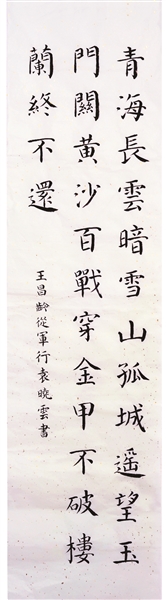 青海長雲暗雪山孤城遥望玉
門關黃沙百戰穿金甲不破樓
蘭終不還
王昌齡從軍行袁曉雲書